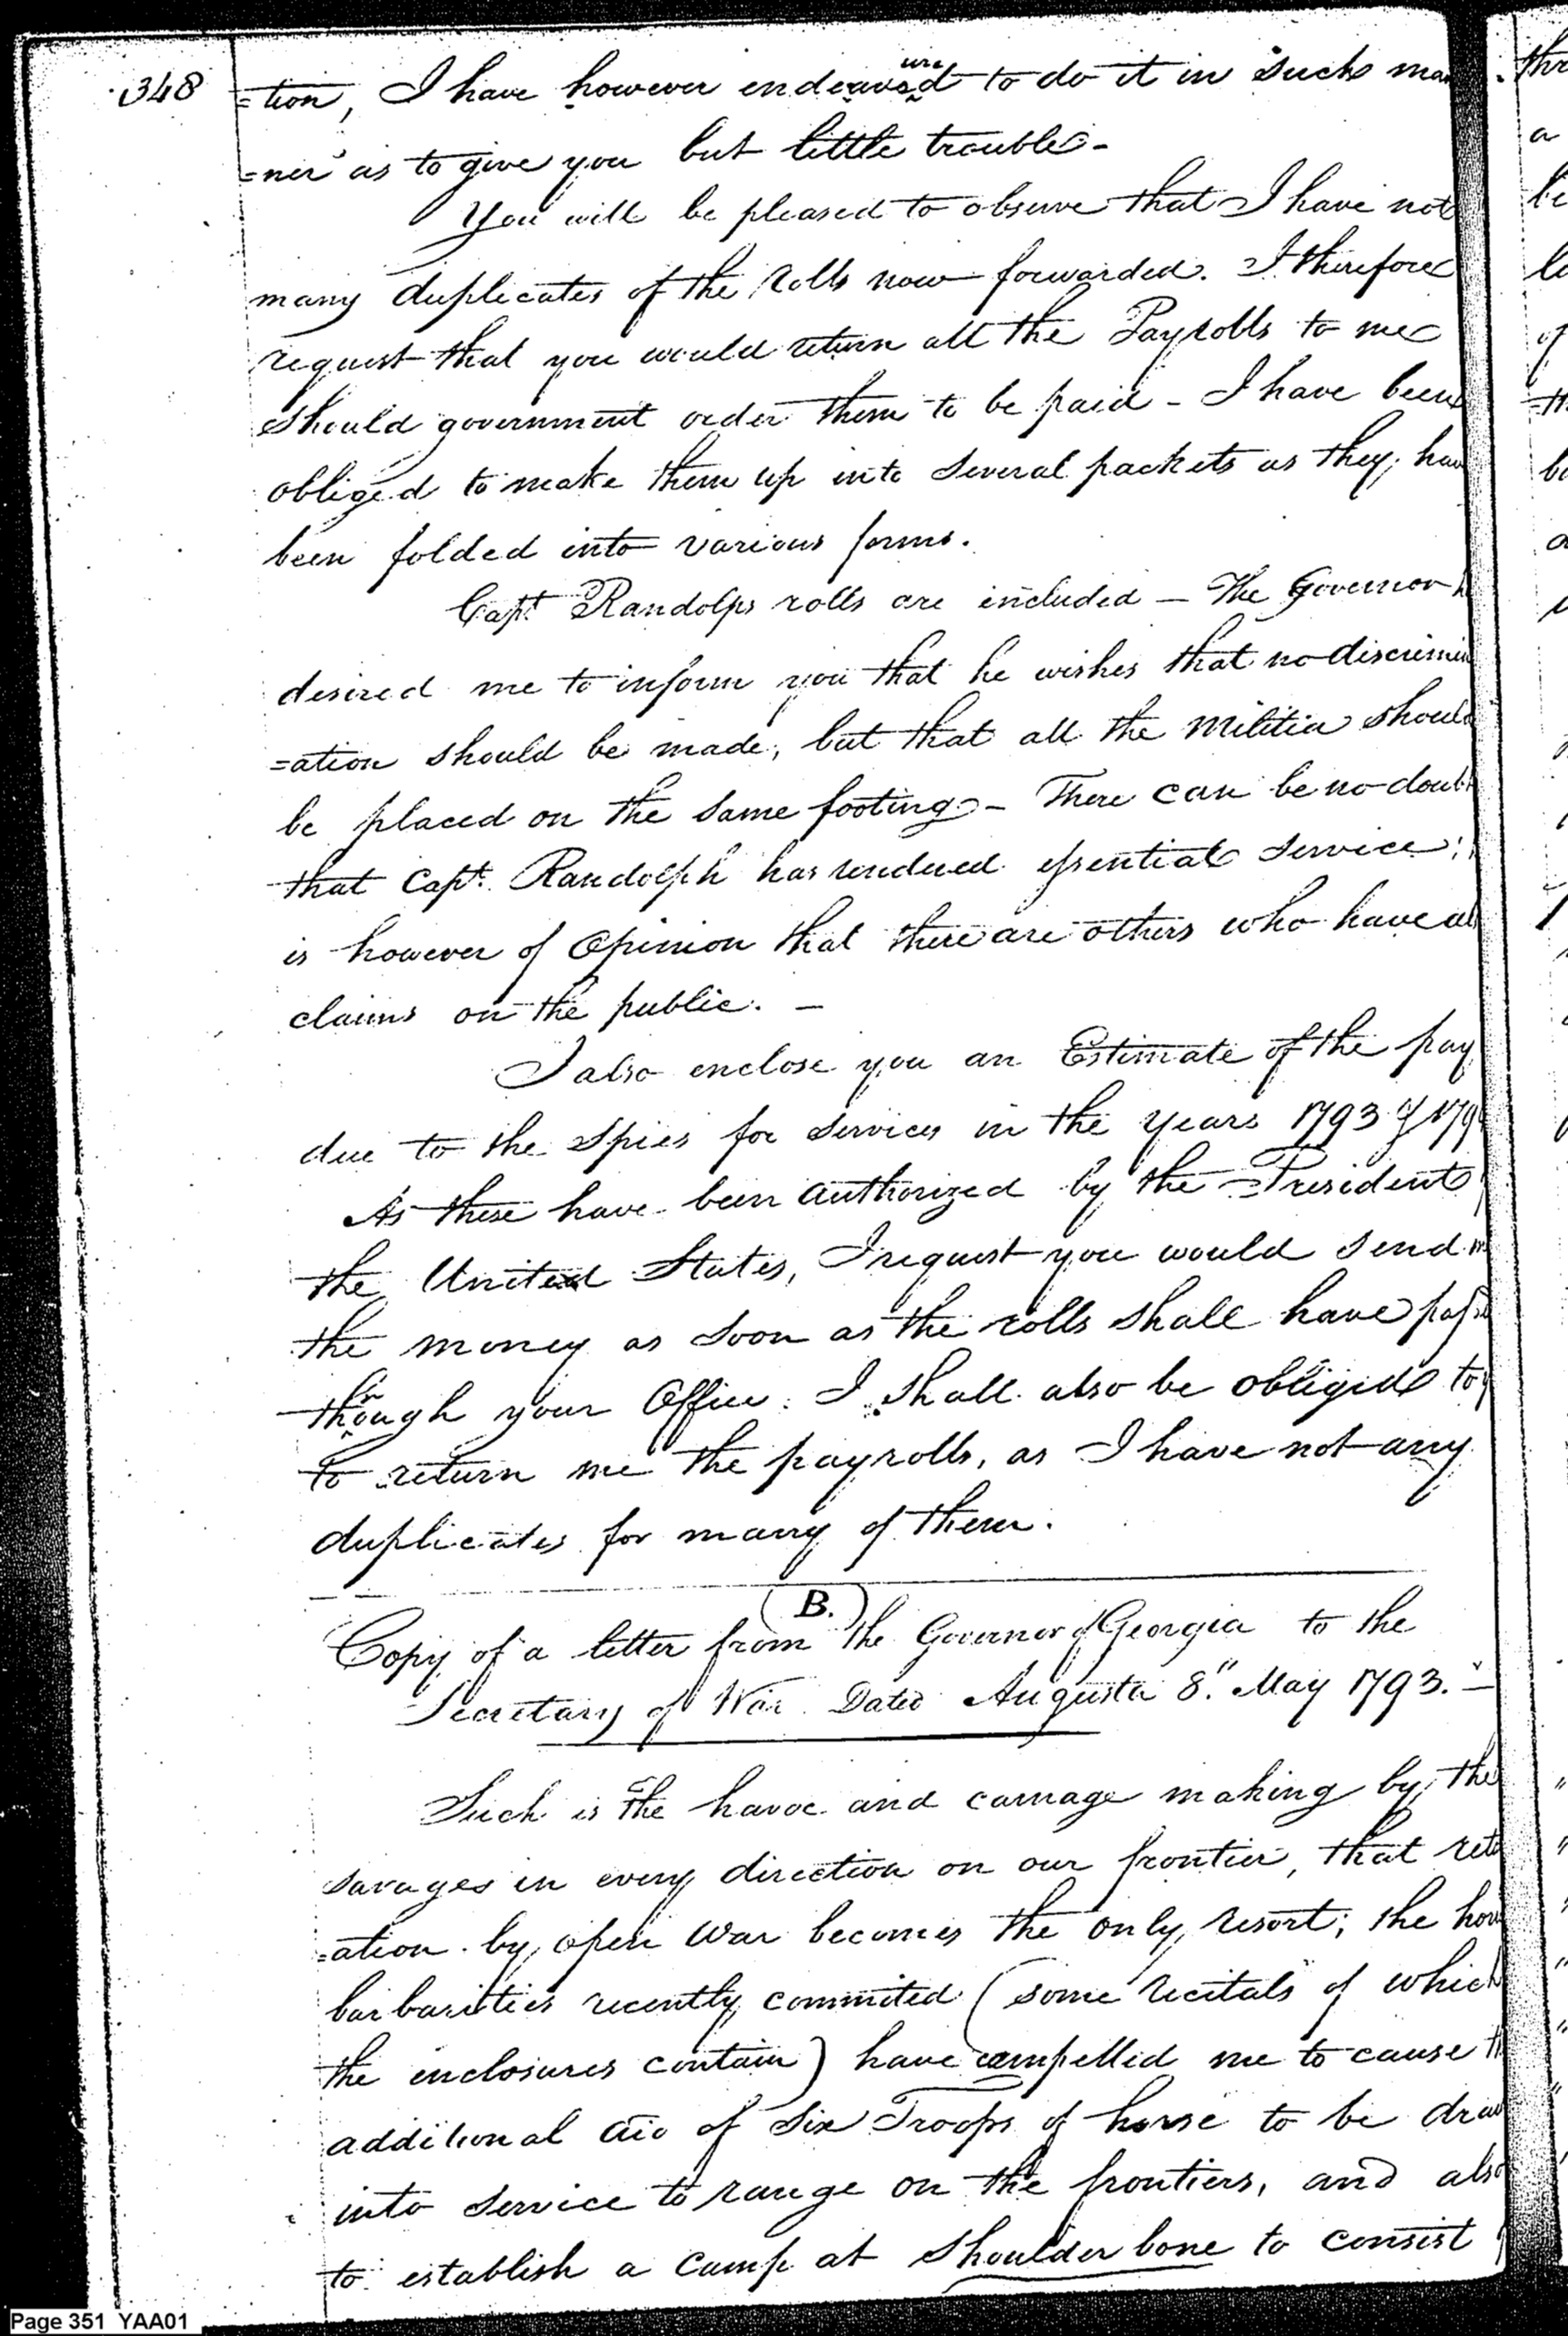 348
=tion, I have however endeavoured to do it in such man
=ner as to give you but little trouble -
You will be pleased to observe that I have not
many duplicates of the rolls now forwarded. I therefore
request that you would return all the Payrolls to me
should government order them to be paid - I have been
obliged to make them up into several packets as they hav
been folded into various forms.
Capt. Randolps rolls are included - The Governor h
desired me to inform you that he wishes that no discrimin
=ation should be made, but that all the militia should
be placed on the same footing - There can be no doubt
that Capt. Randolph has rendered essential service;
is however of Opinion that there are others who have al
claims on the public. -
I also enclose you an Estimate of the pay
due to the spies for services in the years 1793 & 179
As these have been authorized by the President
the United States, I request you would send m
the money as soon as the rolls shall have passe
through your Office. I shall also be obliged to y
to return me the payrolls, as I have not any
duplicates for many of them.
(B.)
Copy of a letter from the Governor of Georgia to the
Secretary of War Dated Augusta 8." May 1793. -
Such is the havoc and carnage making by the
savages in every direction on our frontier, that reta
=ation by open war becomes the only resort; the hor
barbarities recently commited (some recitals of which
the enclosures contain) have compelled me to cause th
additional aid of six Troops of horse to be draw
into service to range on the frontiers, and also
to establish a camp at Shoulder bone to consist
Page 351 YAA01